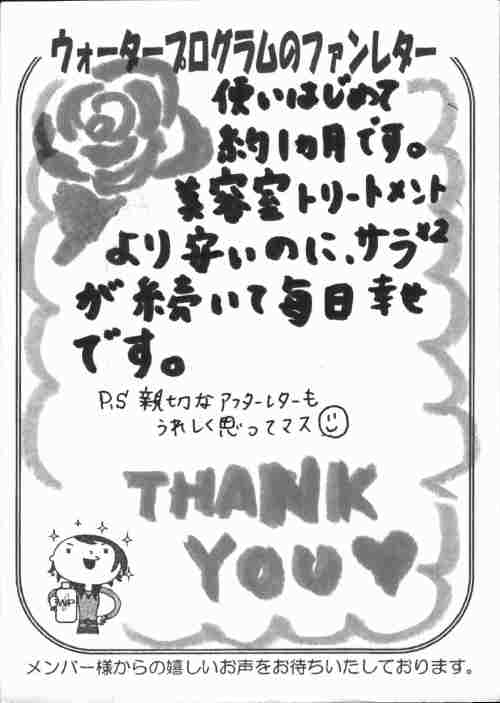 ウォータープログラムのファンレター
使いはじめて
約1カ月です。
美容室トリートメント
より安いのに、サラ×2
が続いて毎日幸せ
です。
P.S 親切なアフターレターも
うれしく思ってマス
THANK
YOU♥
WP
メンバー様からの嬉しいお声をお待ちいたしております。